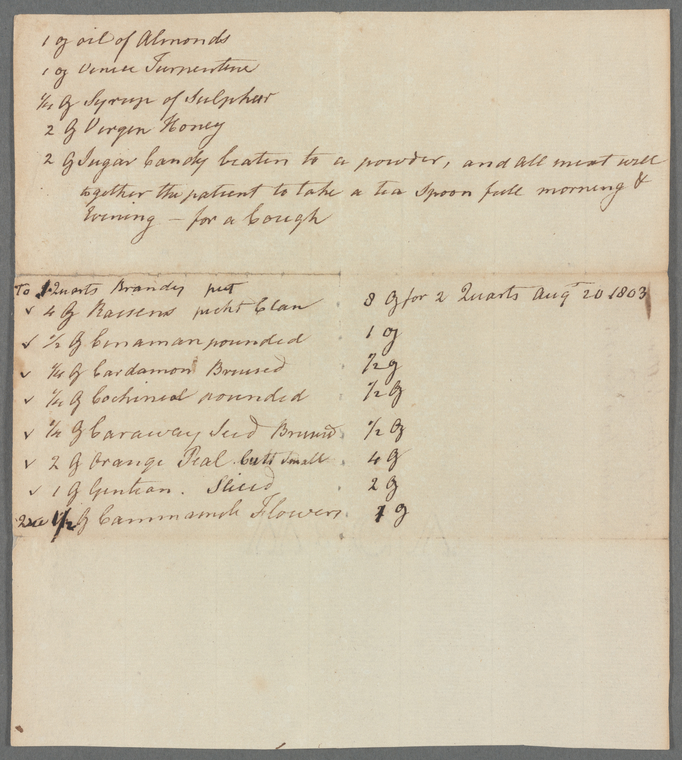 1 oz oil of Almonds
1 oz Venice Turpentine
1/4 oz Syrup of Sulphur
2 oz Virgin Honey
2 oz Sugar Candy beaten to a powder, and all mixt well
together the patient to take a tea Spoon full morning &
Evening – for a Cough
To 1 Quarts Brandy put
✓ 4 oz Raisens pickt Clan 8 oz for 2 Quarts Augt 20 1803
✓ 1/2 oz Cinaman pounded 1 oz
✓ 1/4 oz Cardamon Brused 1/2 oz
✓ 1/4 oz Cochineal pounded 1/2 oz
✓ 1/4 oz Caraway Seed Brused 1/2 oz
✓ 2 oz Orange Peal Cutt Small 4 oz
✓ 1 oz Gentian. Sliced 2 oz
1/2 oz Cammamile Flowers 1 oz